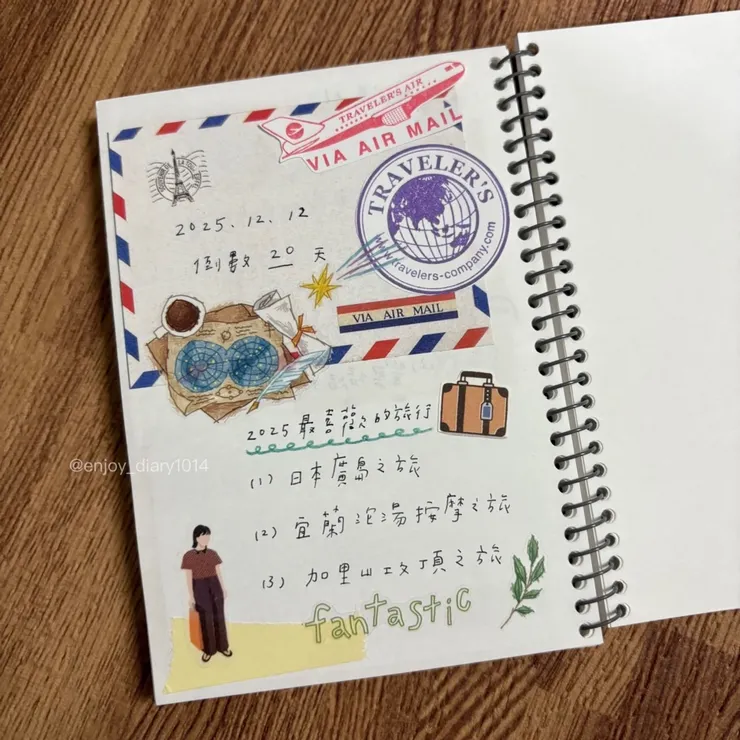 TRAVELER'S AIR
VIA AIR MAIL
TRAVELER'S
www.travelers-company.com
2025.12.12
倒數 20 天
VIA AIR MAIL
2025 最喜歡的旅行
(1) 日本廣島之旅
@enjoy_diary1014
(2) 宜蘭沱湯按摩之旅
(3) 加里山攻頂之旅
fantastic